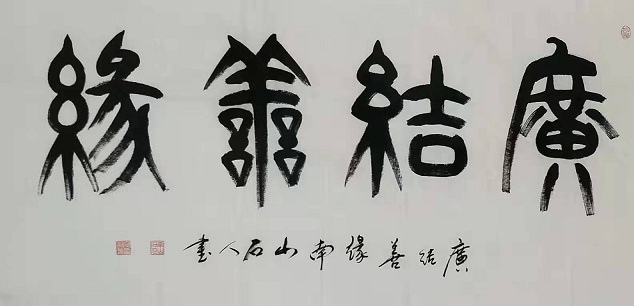 廣結善緣
廣結善緣南山石人書